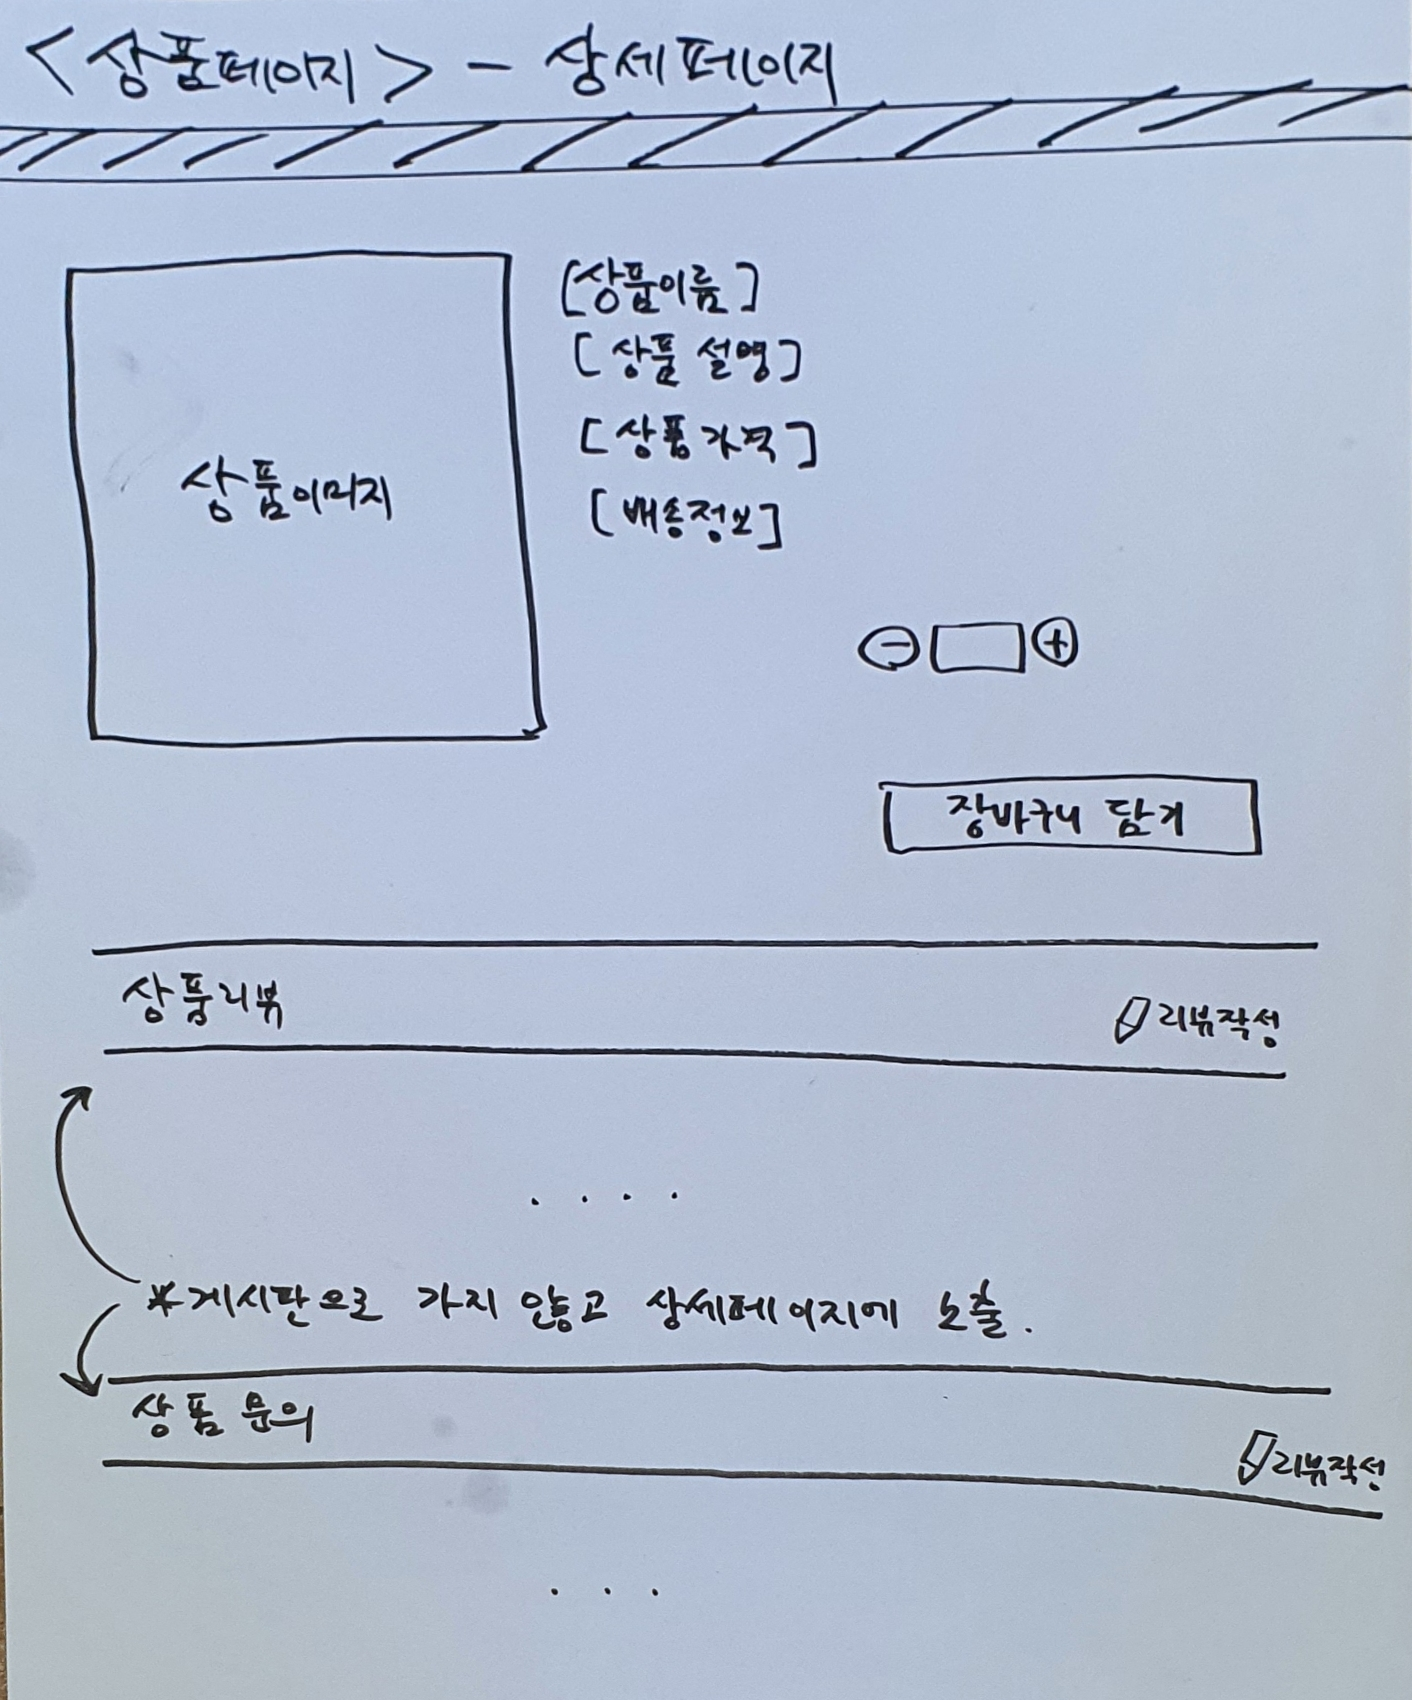 <상품페이지> - 상세페이지
[상품이름]
[상품 설명]
[상품가격]
[배송정보]
상품이미지
- +
장바구니 담기
상품리뷰
리뷰작성
....
*게시판으로 가지 않고 상세페이지에 노출.
상품 문의
리뷰작성
...